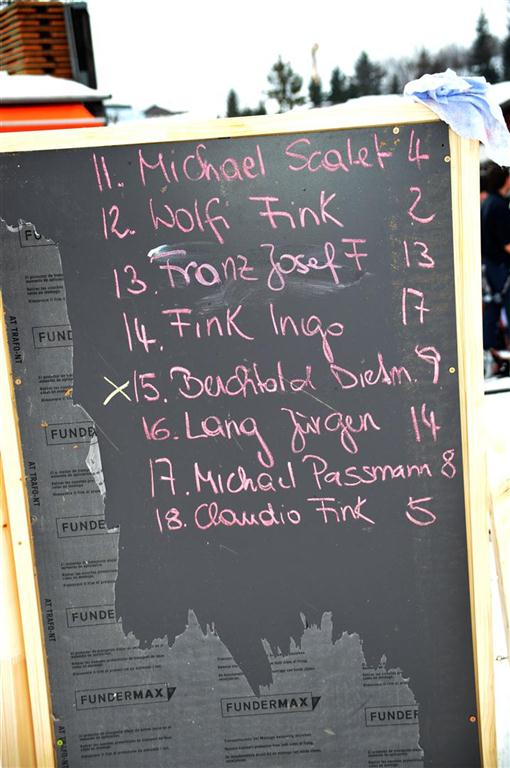 11. Michael Scalet 4
12. Wolfi Fink 2
13. Franz Josef F 13
14. Fink Ingo 17
X 15. Berchtold Dietm. 9
16. Lang Jürgen 14
17. Michael Passmann 8
18. Claudio Fink 5
FU
FUND
FUNDE
FUNDER
FUNDER
FUNDERMAX
FUNDERMAX
FUNDER
AT TRAFO-NT
AT TRAFO-NT
AT TRAFO-NT